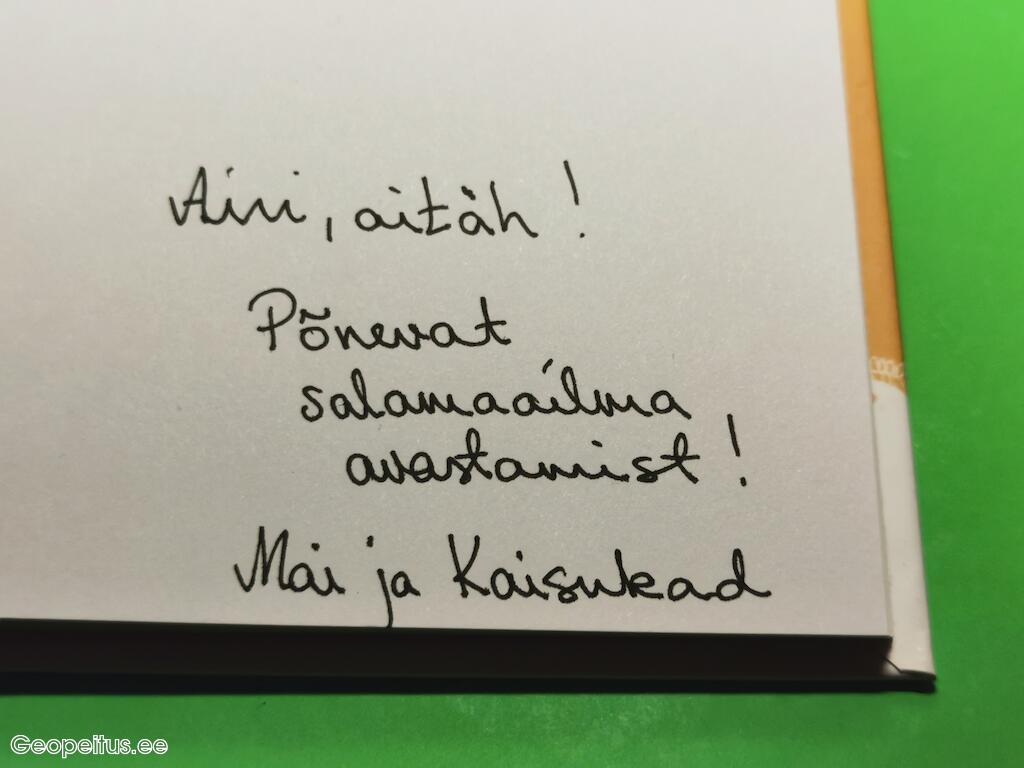 Airi, aitäh!
Põnevat
salamaailma
avastamist!
Mai ja Kaisukad
Geopeitus.ee